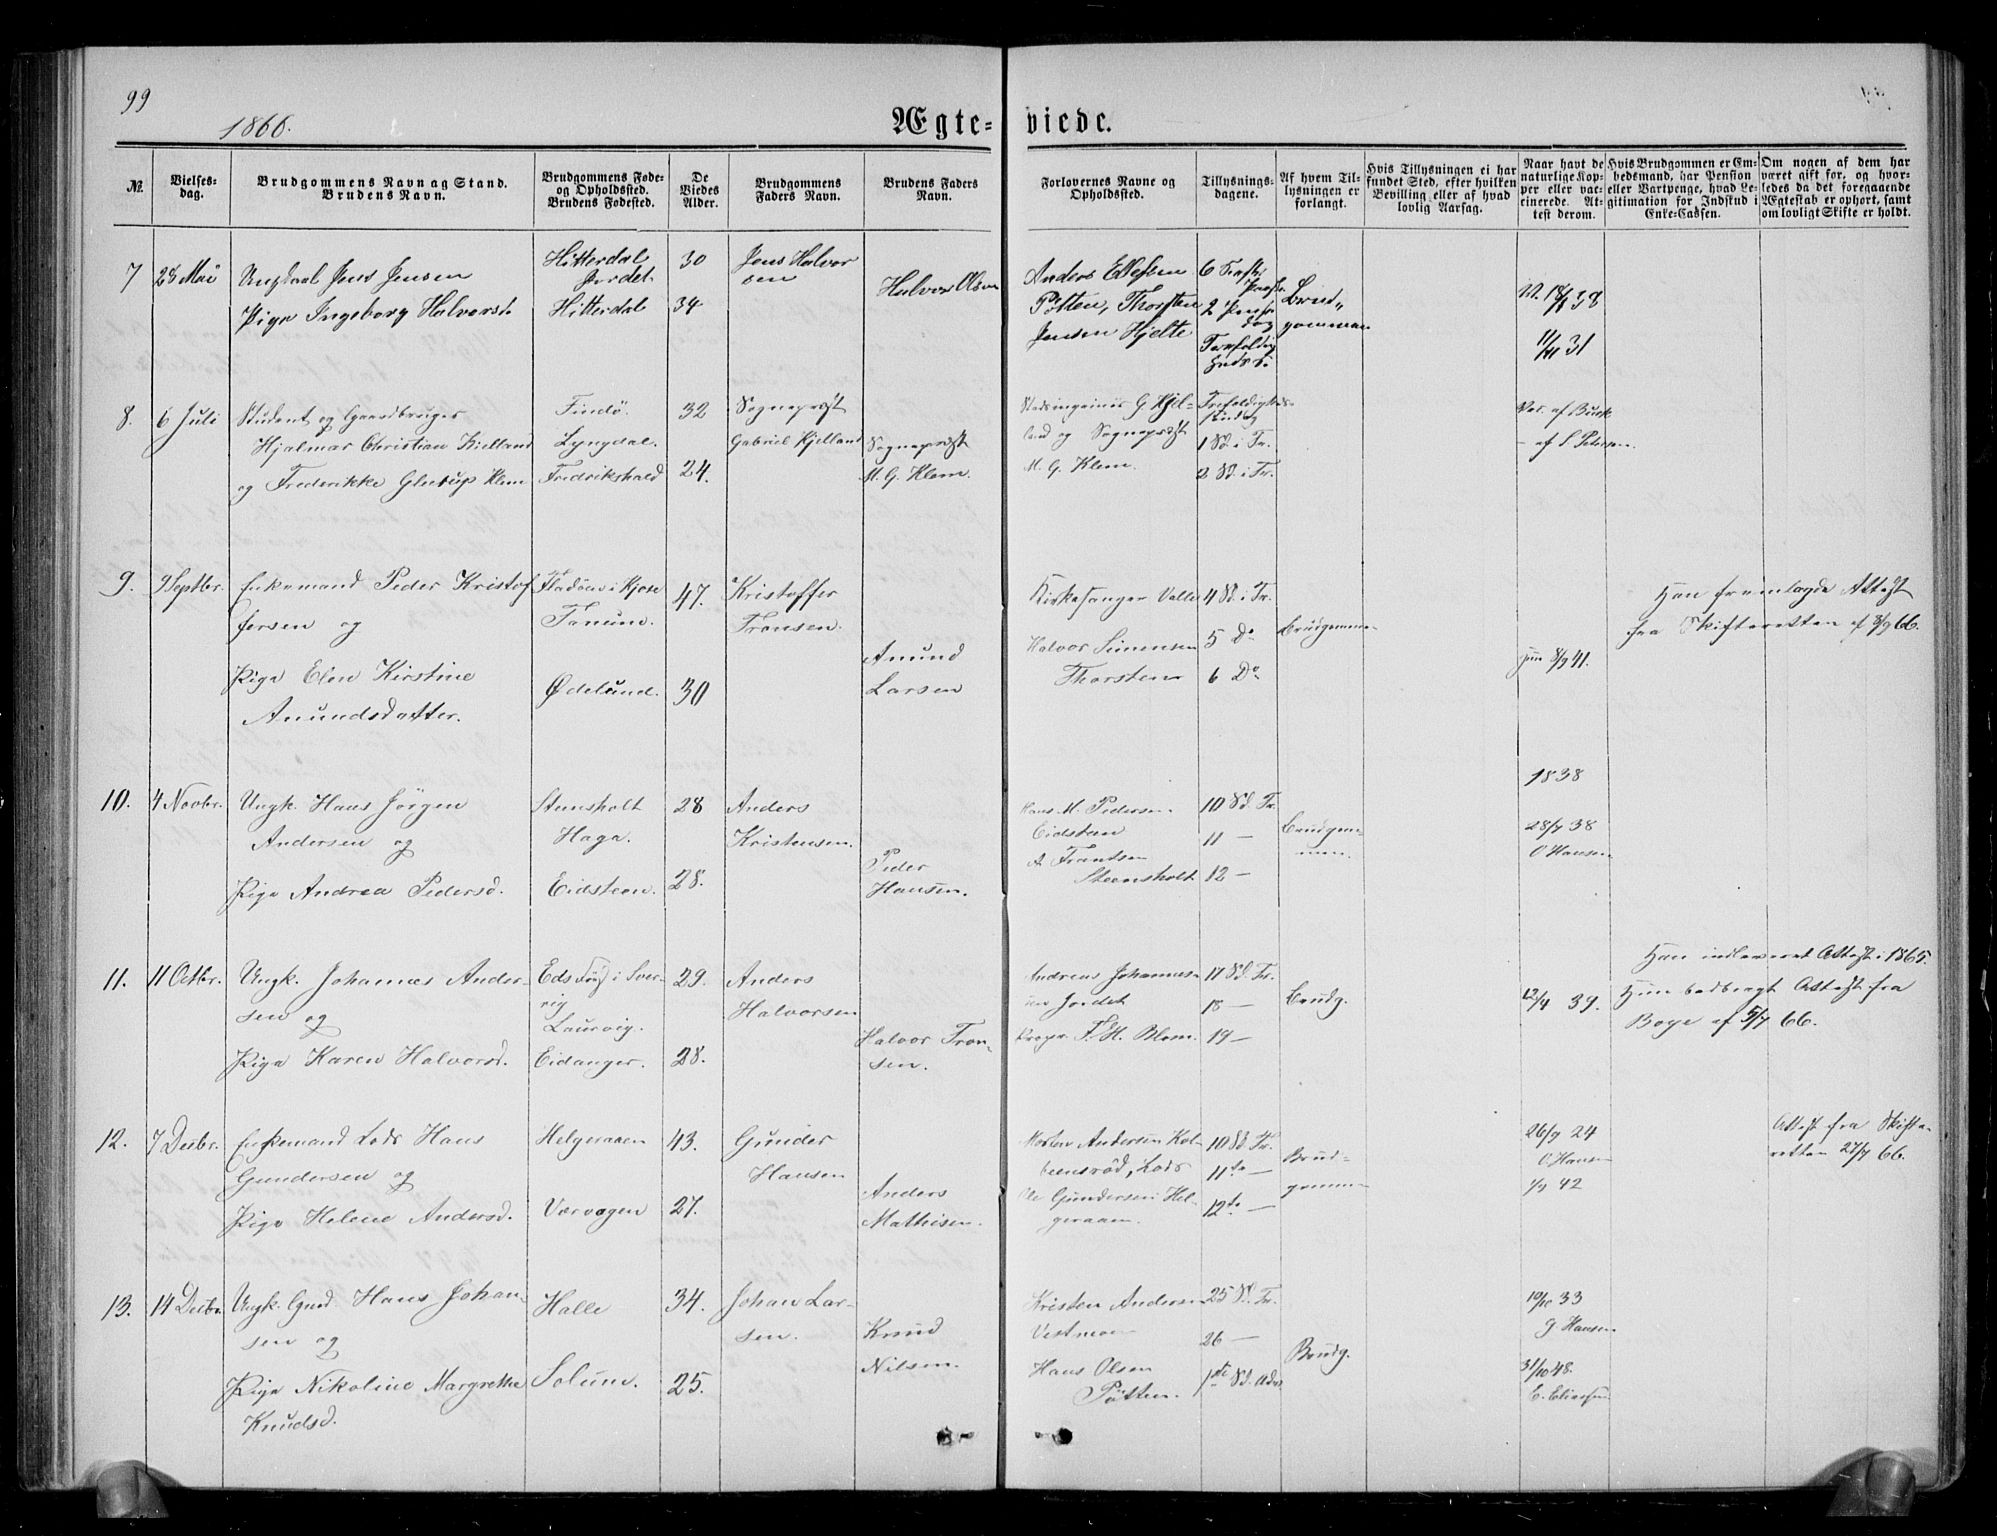 99
1866.
Ægte-
viede.
No.
Vielses-
dag.
Brudgommens Navn og Stand.
Brudens Navn.
Brudgommens Føde-
og Opholdssted.
Brudens Fødested.
De
Viedes
Alder.
Brudgommens
Faders Navn.
Brudens Faders
Navn.
Forlovernes Navne og
Opholdssted.
Tillysnings-
dagene.
Af hvem Til-
lysningen er
forlangt.
Hvis Tillysningen ei har
fundet Sted, efter hvilken
Bevilling eller af hvad
lovlig Aarsag.
Naar havt de
naturlige Kop-
per eller vac-
cinerede. At-
test derom.
Hvis Brudgommen er Em-
bedsmand, har Pension
eller Vartpenge, hvad Le-
gitimation for Indskud i
Enke-Cassen.
Om nogen af dem har
været gift før, og hvor-
ledes da det foregaaende
Ægteskab er ophørt, samt
om lovligt Skifte er holdt.
7 28 Mai Ungkarl Jens Jensen
Pige Ingeborg Halvorsd.
Hitterdal
Jordet
Hitterdal
30
34
Jens Halvor
sen
Halvor Olsen
Anders Ellefsen
Pötten, Thorsten
Jensen Hjelte
6
2
dag
Brud„
gommen
18/ 38
11/ 31
8. 6 Juli Student og Gaardbruger
Hjalmar Christian Kielland
og Frederikke Glerup Klem
Findö.
Lyngdal.
Fredrikshald
32
24.
Sogneprest
Gabriel Kjelland
Sogneprest
M. G. Klem.
Stadsingeniör G. Kjel-
land og Sogneprest
M. G. Klem.
Trefoldigheds-
söndag
1 Sd. i Tr.
2 Sd. i Tr.
Vac. af Busk
— af S. Petersen.
9. 9 Septbr. Enkemand Peder Kristof
fersen og
Pige Elen Kirstine
Anundsdatter.
i Kjose
Tanum.
Ødelund.
47.
30
Kristoffer
Fransen.
Anund
Larsen
Kirkesanger Valle
Halvor Simensen
Thorsten
4 Sd. i Tr.
5 Do
6 Do
Brudgomme
8/9 41.
Han fremlagde Attest
fra Skifteretten af 3/9 66.
10. 4 Novbr. Ungk. Hans Jörgen
Andersen og
Pige Andrea Pedersd.
Stensholt
Haga.
Eidsteen.
28
28.
Anders
Kristensen.
Peder
Hansen.
Hans M. Pedersen
Eidsten
A. Frantsen
Steensholt
10 Sd. Tr.
11 —
12 —
Brudgom-
men.
1838
28/7 38
O Hansen
11. 11 Octbr. Ungk. Johannes Ander-
sen og
Pige Karen Halvorsd.
Eds i Sver-
rig
Laurvig.
Eidanger.
29.
28.
Anders
Halvorsen
Halvor Fran-
sen.
Andreas Johannes-
sen Jordet
F. H. Blom.
17 Sd. Tr.
18 —
19 —
Brudg.
12/4 39.
Han indleveret Attest i 1865.
Hun Attest fra
af 5/7 66.
12. 7 Decbr. Enkemand Lods Hans
Gundersen og
Pige Helene Andersd.
Helgeraaen
Værvagen
43.
27.
Gunder
Hansen
Anders
Mathisen.
Morten Andersen Kol-
beensröd, Lods
Ole Gundersen Hel-
geraaen.
10 Sd. Tr.
11te —
12te —
Brud-
gomme
26/9 24
O Hansen
1/9 42
Attest fra Skifte-
retten 27/7 66.
13. 14 Decbr. Ungk. Gmd. Hans Johan-
sen og
Pige Nikoline Margrethe
Knudsd.
Halle
Solum.
34.
25.
Johan Lar-
sen.
Knud
Nilsen.
Kristen Andersen
Vestmoen
Hans Olsen
Pötten.
25 Sd. Tr.
26 —
1ste Sd. Adv.
Brudg.
10/10 33
G Hansen
31/10 48.
E. Eliassen